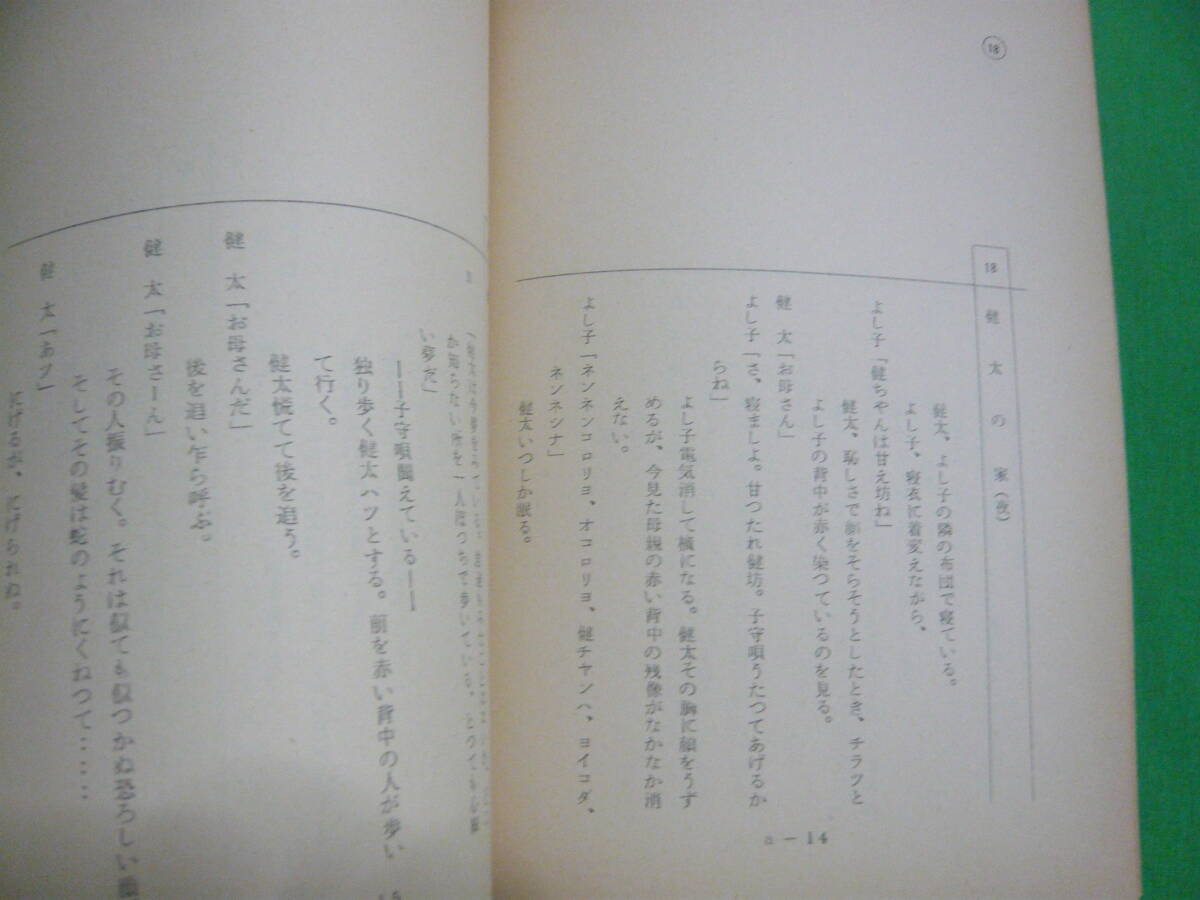 ⑱
18 健太の家(夜)
健太、よし子の隣の布団で寝ている。
よし子、寝衣に着変えながら、
よし子「健ちゃんは甘え坊ね」
健太、恥しさで顔をそらそうとしたとき、チラツと
よし子の背中が赤く染つているのを見る。
健 太「お母さん」
よし子「さ、寝ましよ。甘つたれ健坊。子守唄うたつてあげるか
らね」
よし子電気消して横になる。健太その胸に顔をうず
めるが、今見た母親の赤い背中の残像がなかなか消
えない。
よし子「ネンネンコロリヨ、オコロリヨ、健チヤンハ、ヨイコダ、
ネンネシナ」
健太いつしか眠る。
a－14
か知らない所を一人ぼつちで歩いている。
い夢だ」
――子守唄聞えている――
独り歩く健太ハツとする。前を赤い背中の人が歩い
て行く。
健太慌てて後を追う。
健 太「お母さんだ」
後を追い乍ら呼ぶ。
健 太「お母さーん」
その人振りむく。それは似ても似つかぬ恐ろしい
そしてその髪は蛇のようにくねつて‥‥‥
健 太「あツ」
にげるが、にげられぬ。